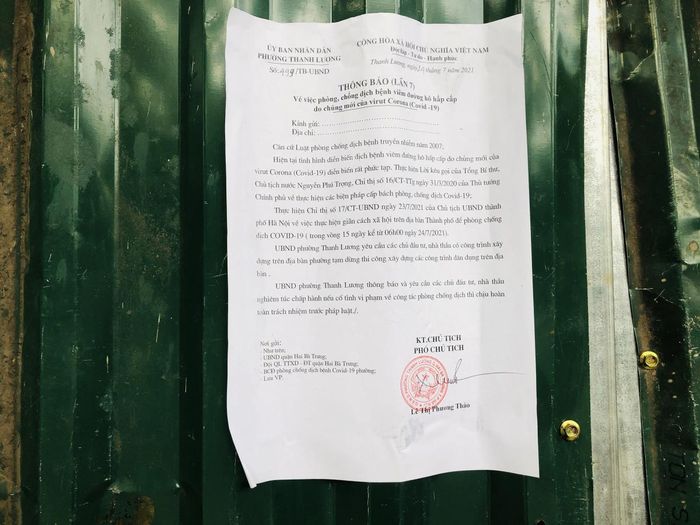 ỦY BAN NHÂN DÂN
PHƯỜNG THANH LƯƠNG
Số: /TB-UBND
CỘNG HÒA XÃ HỘI CHỦ NGHĨA VIỆT NAM
Độc lập - Tự do - Hạnh phúc
Thanh Lương, ngày 24 tháng 7 năm 2021
THÔNG BÁO (LẦN 7)
Về việc phòng, chống dịch bệnh viêm đường hô hấp cấp
do chủng mới của virut Corona (Covid -19)
Kính gửi:
Địa chỉ:
Căn cứ Luật phòng chống dịch bệnh truyền nhiễm năm 2007;
Hiện tại tình hình diễn biến dịch bệnh viêm đường hô hấp cấp do chủng mới của
virut Corona (Covid-19) diễn biến rất phức tạp. Thực hiện Lời kêu gọi của Tổng Bí thư,
Chủ tịch nước Nguyễn Phú Trọng, Chỉ thị số 16/CT-TTg ngày 31/3/2020 của Thủ tướng
Chính phủ về thực hiện các biện pháp cấp bách phòng, chống dịch Covid-19;
Thực hiện Chỉ thị số 17/CT-UBND ngày 23/7/2021 của Chủ tịch UBND thành
phố Hà Nội về việc thực hiện giãn cách xã hội trên địa bàn Thành phố để phòng chống
dịch COVID-19 ( trong vòng 15 ngày kể từ 06h00 ngày 24/7/2021).
UBND phường Thanh Lương yêu cầu các chủ đầu tư, nhà thầu có công trình xây
dựng trên địa bàn phường tạm dừng thi công xây dựng các công trình dân dụng trên địa
bàn .
UBND phường Thanh Lương thông báo và yêu cầu các chủ đầu tư, nhà thầu
nghiêm túc chấp hành nếu cố tình vi phạm về công tác phòng chống dịch thì chịu hoàn
toàn trách nhiệm trước pháp luật./.
Nơi gửi:
- Như trên;
- UBND quận Hai Bà Trưng;
- Đội QL TTXD - ĐT quận Hai Bà Trưng;
- BCĐ phòng chống dịch bệnh Covid-19 phường;
- Lưu VP.
KT.CHỦ TỊCH
PHÓ CHỦ TỊCH
Lê Thị Phương Thảo